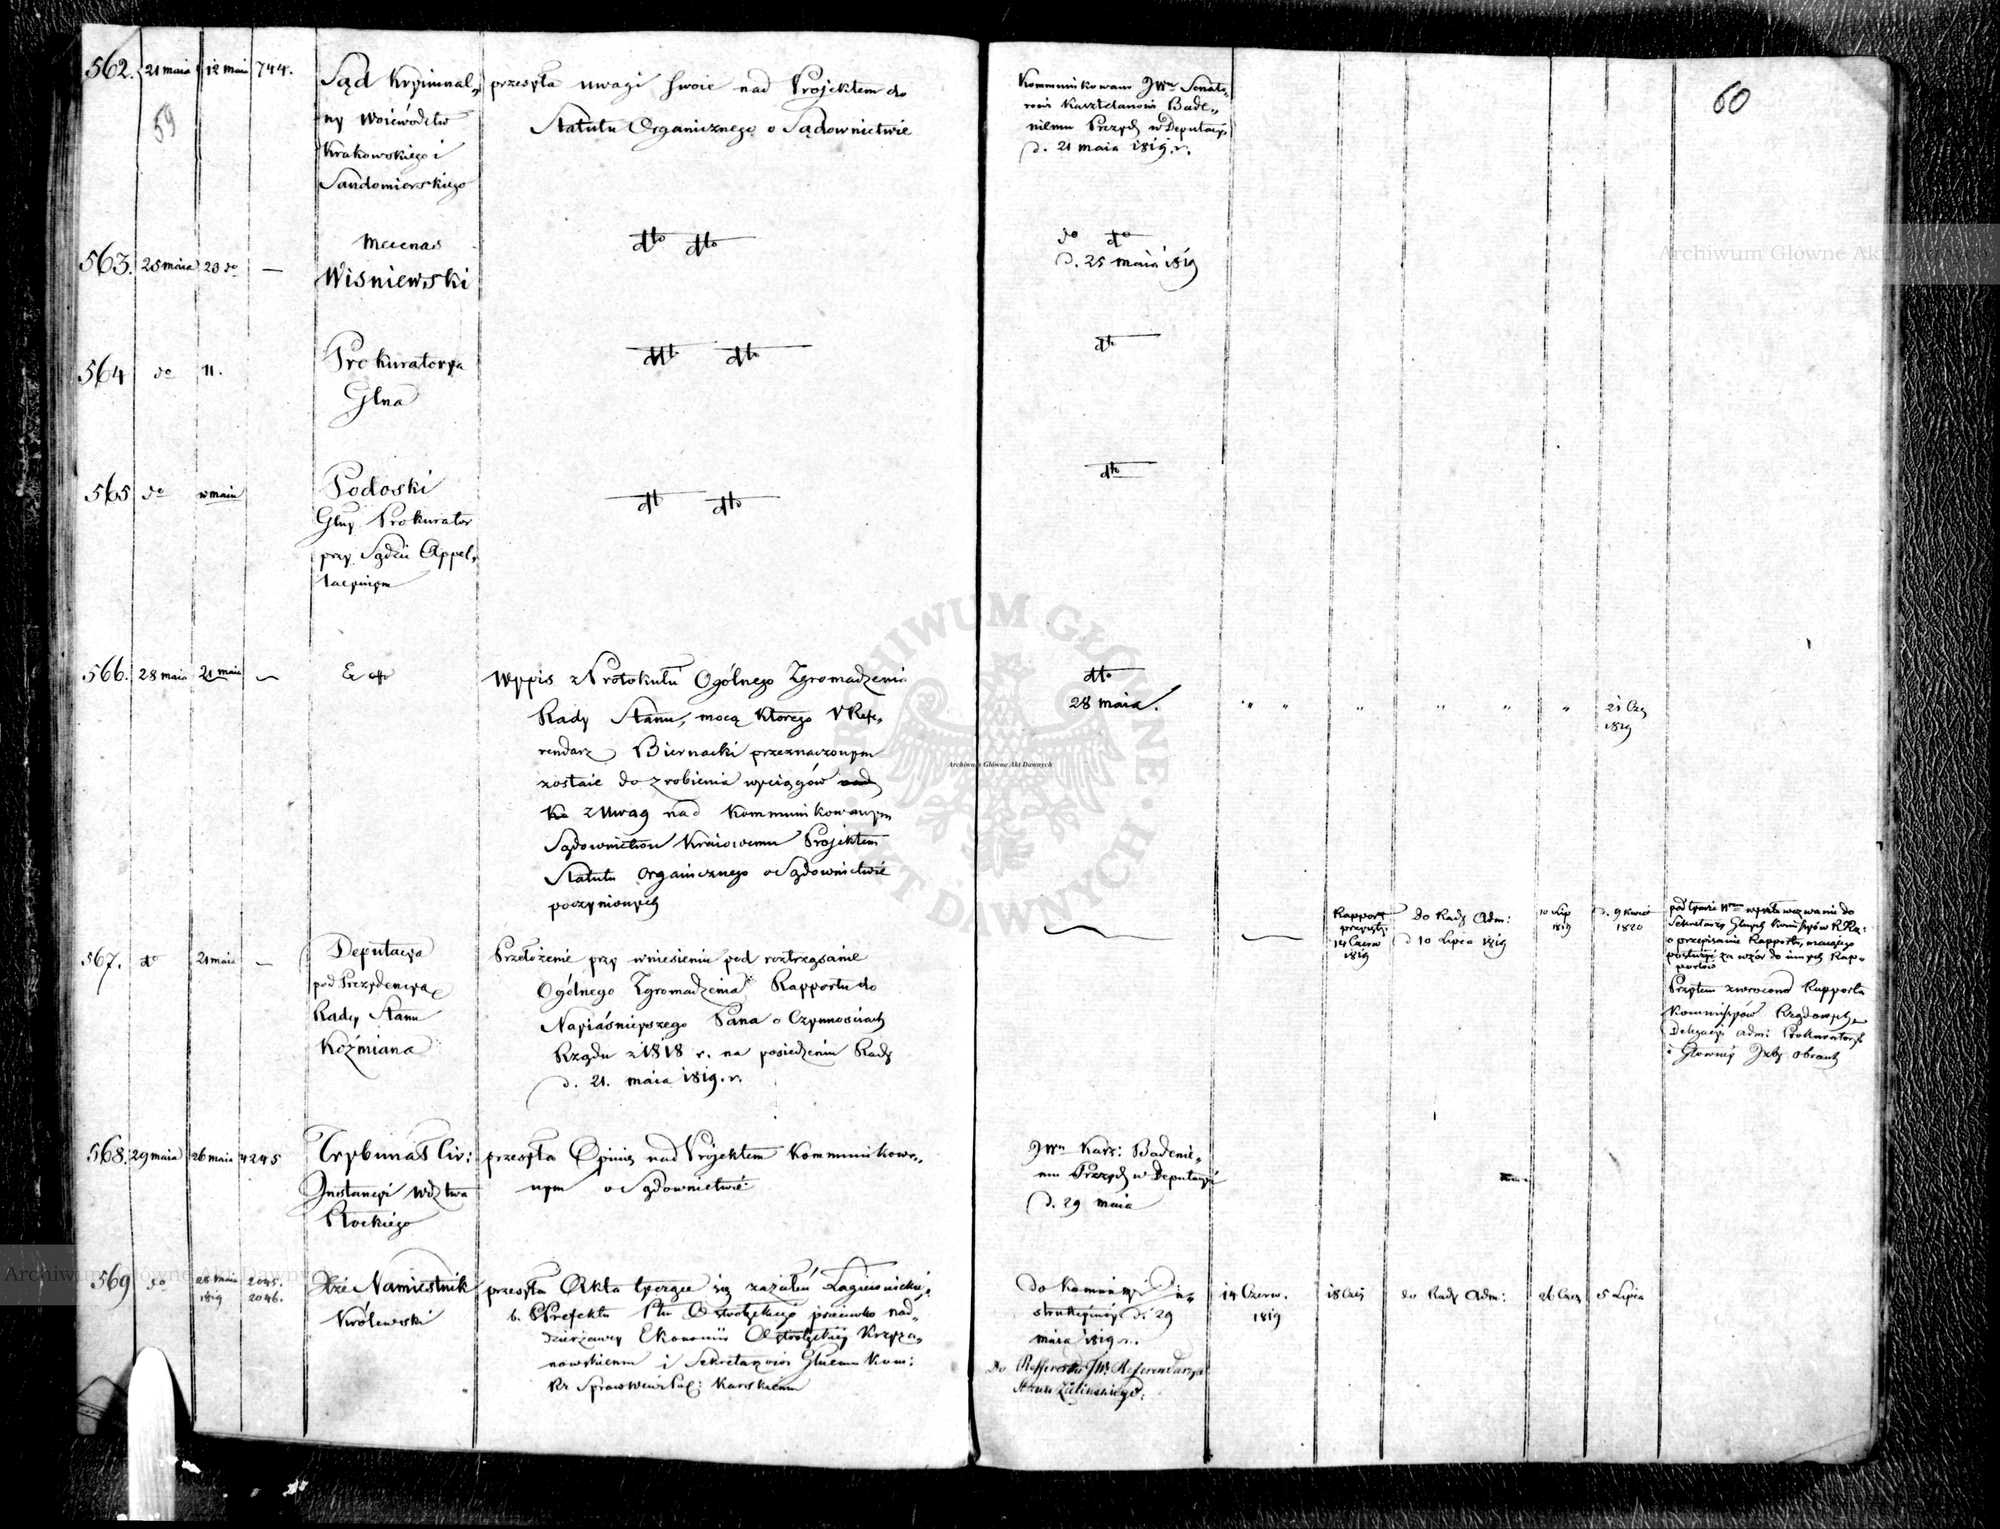 60
59
562. 21 maia 12 maia 744.
Sąd Kryminal„
ny Woiewództw
Krakowskiego i
Sandomierskiego
przesyła uwagi swoie nad Projektem do
Statutu Organicznego o Sądownictwie
Kommunikowano JWmu Senato„
rowi Kasztelanowi Bade„
niemu Prezyd: w Deputacyi
d. 21 maia 1819. r.
563. 25 maia 23 do —
Mecenas
Wisniewski
dto dto
do do
d. 25 maia 1819
564 do 11.
Prokuratorya
Glna
dto dto
dto
565 do w maiu
Podoski
Głny Prokurator
przy Sądzie Appel„
lacyinym
dto dto
dto
566. 28 maia 21 maia —
Wypis z Protokułu Ogólnego Zgromadzenia
Rady Stanu, mocą którego Refe„
rendarz Biernacki przeznaczonym
zostaie do zrobienia wyciągów
z Uwag nad kommunikowanym
Sądownictwu Kraiowemu Projektem
Statutu Organicznego o Sądownictwie
poczynionych
dto
28 maia.
„ „ „ „ „ „ 21 Cze
1819
567. do 21 maia —
Deputacya
pod Prezydencyą
Rady Stanu
Koźmiana
Przełożenie przy wniesieniu pod roztrząsanie
Ogólnego Zgromadzenia Rapportu do
Nayiaśnieyszego Pana o Czynnościach
Rządu z 1818 r. na posiedzeniu Rady
d. 21. maia 1819. r.
Rapport
14 Czerw
1819
do Rady Adm:
d 10 Lipca 1819
10 Lip
1819
d. 9 Kwiet
1820
o przepisanie Rapportu, maiącego
posłużyć za wzór do innych Rap„
portów
Przytem zwrócono Rapporta
Kommissyów Rządowych
Delegacyi Adm: Prokuratoryi
i Głowney Izby Obrach
568. 29 maia 26 maia 4245
Trybunał Civ:
Instancyi Wdztwa
Płockiego
przesyła Opinię nad Projektem kommunikowa„
nym o Sądownictwie
JWmu Kasz: Badenie„
mu Prezyd: w Deputacyi
d. 29 maia
569 do 28 maia 2045.
1819 2046.
Xże Namiestnik
Królewski
przesyła Akta tyczące się zażaleń Łagiewnickie„
b. PPrefekta Ptu Ostrołęckiego przeciwko nad„
dzierżawcy Ekonomii Ostrołęckiey Krzyża„
nowskiemu i Sekretarzowi Głnemu Kom:
Rz Spraw Wew: i Pol: Karskiemu
do Kommissyi In„
strukcyiney d. 29
maia 1819 r.
do Refferenta JW. Referendarza
Stanu Zielinskiego.
14 Czerw.
1819
18 Cze
do Rady Adm:
26 Cze
5 Lipca
ARCHIWUM GŁÓWNE AKT DAWNYCH
Archiwum Główne Akt Dawnych
Archiwum Główne Akt Dawnych
Archiwum Główne Akt Dawnych